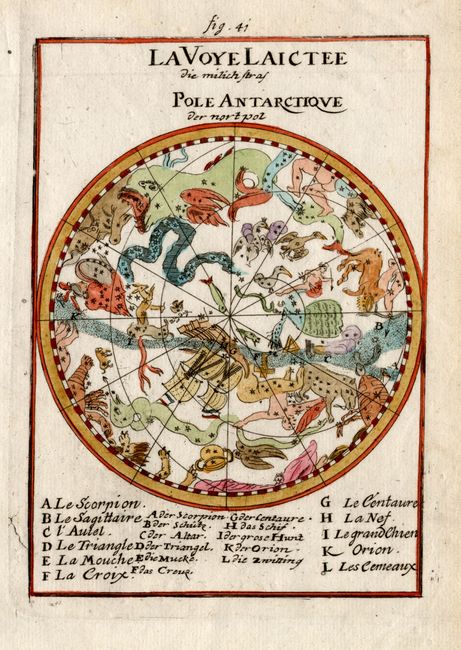 fig. 41
LA VOYE LAICTEE
die milich stras
POLE ANTARCTIQVE
der nort pol
A Le Scorpion.
B Le Sagittaire.
C l'Autel.
D Le Triangle
E La Mouche
F La Croix.
A der Scorpion.
B der Schütz.
C der Altar.
D der Triangel.
E die Mucke.
F das Creuz.
G der Centaure.
H das Schif.
I der grose Hunt
K der Orion.
L die Zwilling
G Le Centaure
H La Nef.
I Le grand Chien
K Orion.
L Les Gemeaux